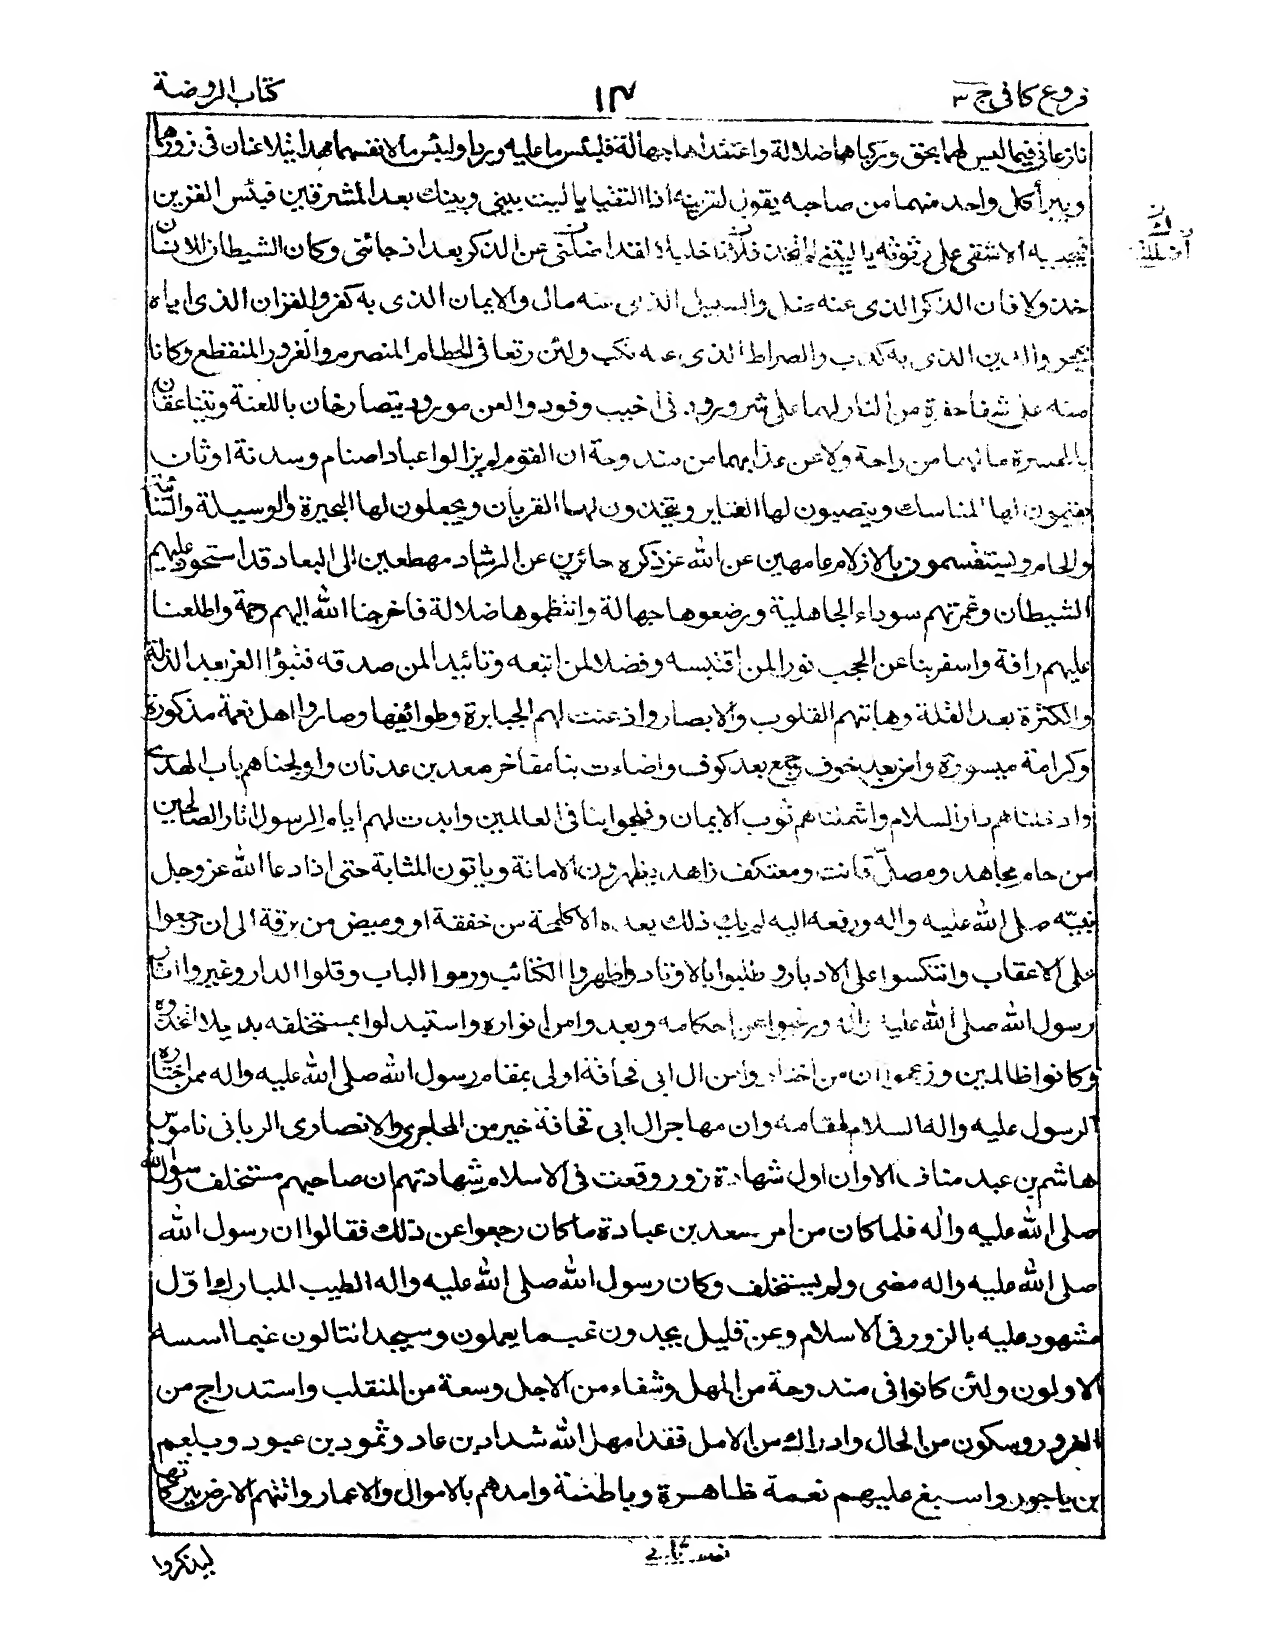 فروع كافى ج ٣
١٣
كتاب الروضة
نازعانى فيما ليس لهما بحق وركباها ضلالة واعتقداها جهالة فلبئس ما عليه وردا ولبئس ما لانفسهما مهدا يتلاعنان فى دورهما
ويبرأ كل واحد منهما من صاحبه يقول لقرينه اذا التقيا يا ليت بينى وبينك بعد المشرقين فبئس القرين
فيجيبه الاشقى على رثوثة يا ليتنى لم اتخذك خليلا لقد اضللتنى عن الذكر بعد اذ جائنى وكان الشيطان للانسان
خذولا فانا الذكر الذى عنه ضل والسبيل الذى عنه مال والايمان الذى به كفر والقران الذى اياه
هجر والدين الذى به كذب والصراط الذى عنه نكب ولئن رتعا فى الحطام المنصرم والغرور المنقطع وكانا
منه على شفا حفرة من النار لهما على شر ورود فى اخيب وفود والعن مورود يتصارخان باللعنة ويتناعقان
بالحسرة ما لهما من راحة ولا عن عذابهما من مندوحة ان القوم لم يزالوا عباد اصنام وسدنة اوثان
يقيمون لها المناسك وينصبون لها العتاير ويتخذون لها القربان ويجعلون لها البحيرة والوسيلة والسائبة
والحام ويستقسمون بالازلام عامهين عن الله عز ذكره حائرين عن الرشاد مهطعين الى البعاد قد استحوذ عليهم
الشيطان وغمرتهم سوداء الجاهلية ورضعوها جهالة وانتظموها ضلالة فاخرجنا الله اليهم رحمة واطلعنا
عليهم رافة واسفر بنا عن الحجب نورا لمن اقتبسه وفضلا لمن اتبعه وتائيدا لمن صدقه فتبؤا العز بعد الذلة
والكثرة بعد القلة وهابتهم القلوب والابصار واذعنت لهم الجبابرة وطوائفها وصاروا اهل نعمة مذكورة
وكرامة ميسورة وامن بعد خوف وجمع بعد كوف واضاءت بنا مفاخر معد بن عدنان واولجناهم باب الهدى
وادخلناهم دار السلام واشملناهم ثوب الايمان وفلجوا بنا فى العالمين وابدت لهم ايام الرسول اثار الصالحين
من حام مجاهد ومصلّ قانت ومعتكف زاهد يظهرون الامانة وياتون المثابة حتى اذا دعا الله عز وجل
نبيّه صلى الله عليه واله ورفعه اليه لم يك ذلك بعده الا كلمحة من خفقة او وميض من برقة الى ان رجعوا
على الاعقاب وانتكسوا على الادبار وطلبوا بالاوتار واظهروا الكتائب وردموا الباب وفلوا الدار وغيروا اثار
رسول الله صلى الله عليه واله ورغبوا عن احكامه وبعدوا من انواره واستبدلوا بمستخلفه بديلا اتخذوه
وكانوا ظالمين وزعموا ان من اختاروا من ال ابى قحافة اولى بمقام رسول الله صلى الله عليه واله ممن اختاره
الرسول عليه واله السلام لمقامه وان مهاجر ال ابى قحافة خير من المهاجرى والانصارى الربانى ناموس
هاشم بن عبد مناف الا وان اول شهادة زور وقعت فى الاسلام شهادتهم ان صاحبهم مستخلف رسول الله
صلى الله عليه واله فلما كان من امر سعد بن عبادة ما كان رجعوا عن ذلك فقالوا ان رسول الله
صلى الله عليه واله مضى ولم يستخلف وكان رسول الله صلى الله عليه واله الطيب المبارك اوّل
مشهود عليه بالزور فى الاسلام وعن قليل يجدون غب ما يعملون وسيجد التالون غب ما اسسه
الاولون ولئن كانوا فى مندوحة من المهل وشفاء من الاجل وسعة من المنقلب واستدراج من
الغرور وسكون من الحال وادراك من الامل فقد امهل الله شداد بن عاد وثمود بن عبود وبلعم
بن باجور واسبغ عليهم نعمة ظاهرة وباطنة وامدهم بالاموال والاعمار واتتهم الارض ببركاتها
ليذكروا